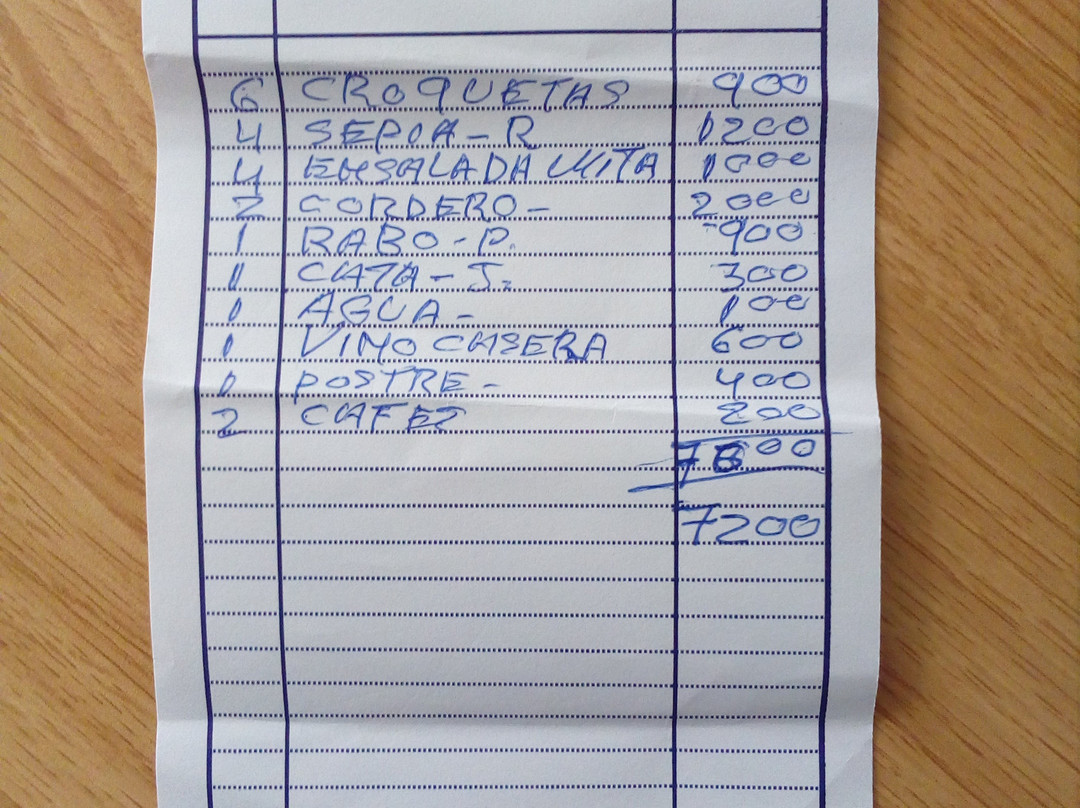 6 CROQUETAS 900
4 SEPIA-R 1200
4 ENSALADA MITA 1000
2 CORDERO- 2000
1 RABO-P. 900
1 CATA-J. 300
1 AGUA- 100
1 VINO CASERA 600
1 POSTRE- 400
2 CAFES 200
7200